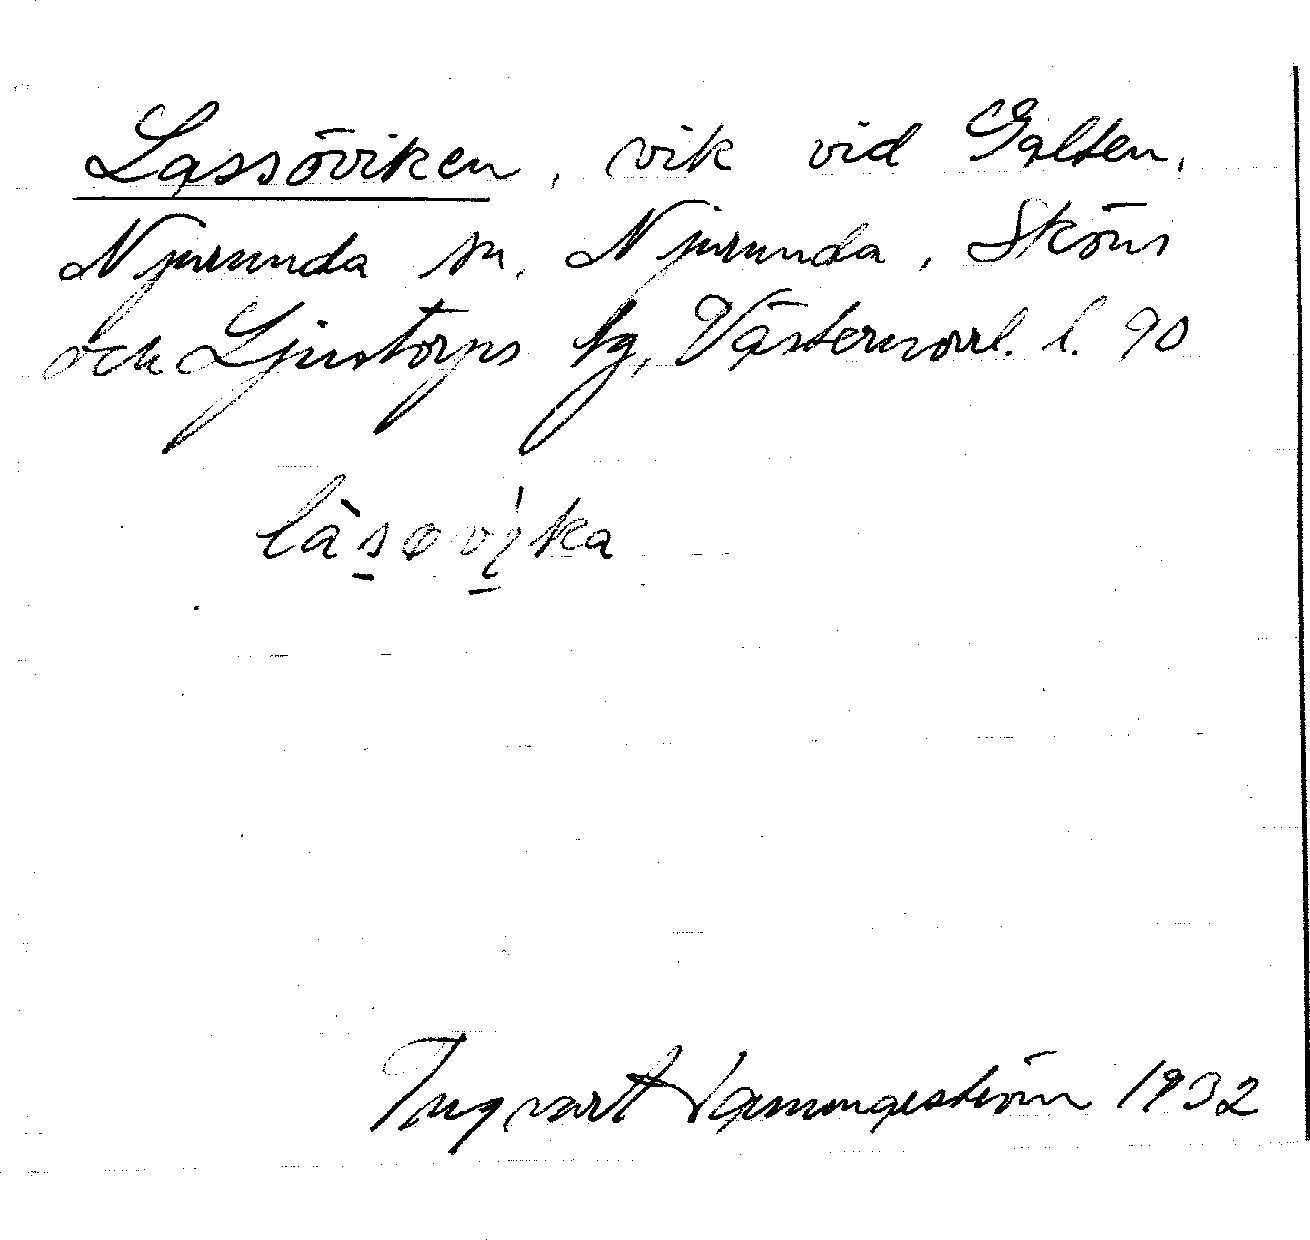 Lassöviken, vik vid Galten,
Njurunda sn, Njurunda, Sköns
och Ljustorps tg, Västernorrl. l. 90
làsovi̱ka
Ingvart 1932